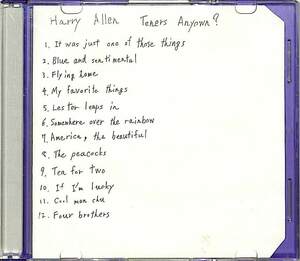 Harry Allen Tenors Anyown?
1. It was just one of those things
2. Blue and sentimental
3. Flying home
4. My favorite things
5. Lester leaps in
6. Somewhere over the rainbow
7. America, the beautiful
8. The peacocks
9. Tea for two
10. If I'm lucky
11. Cool mon chu
12. Four brothers